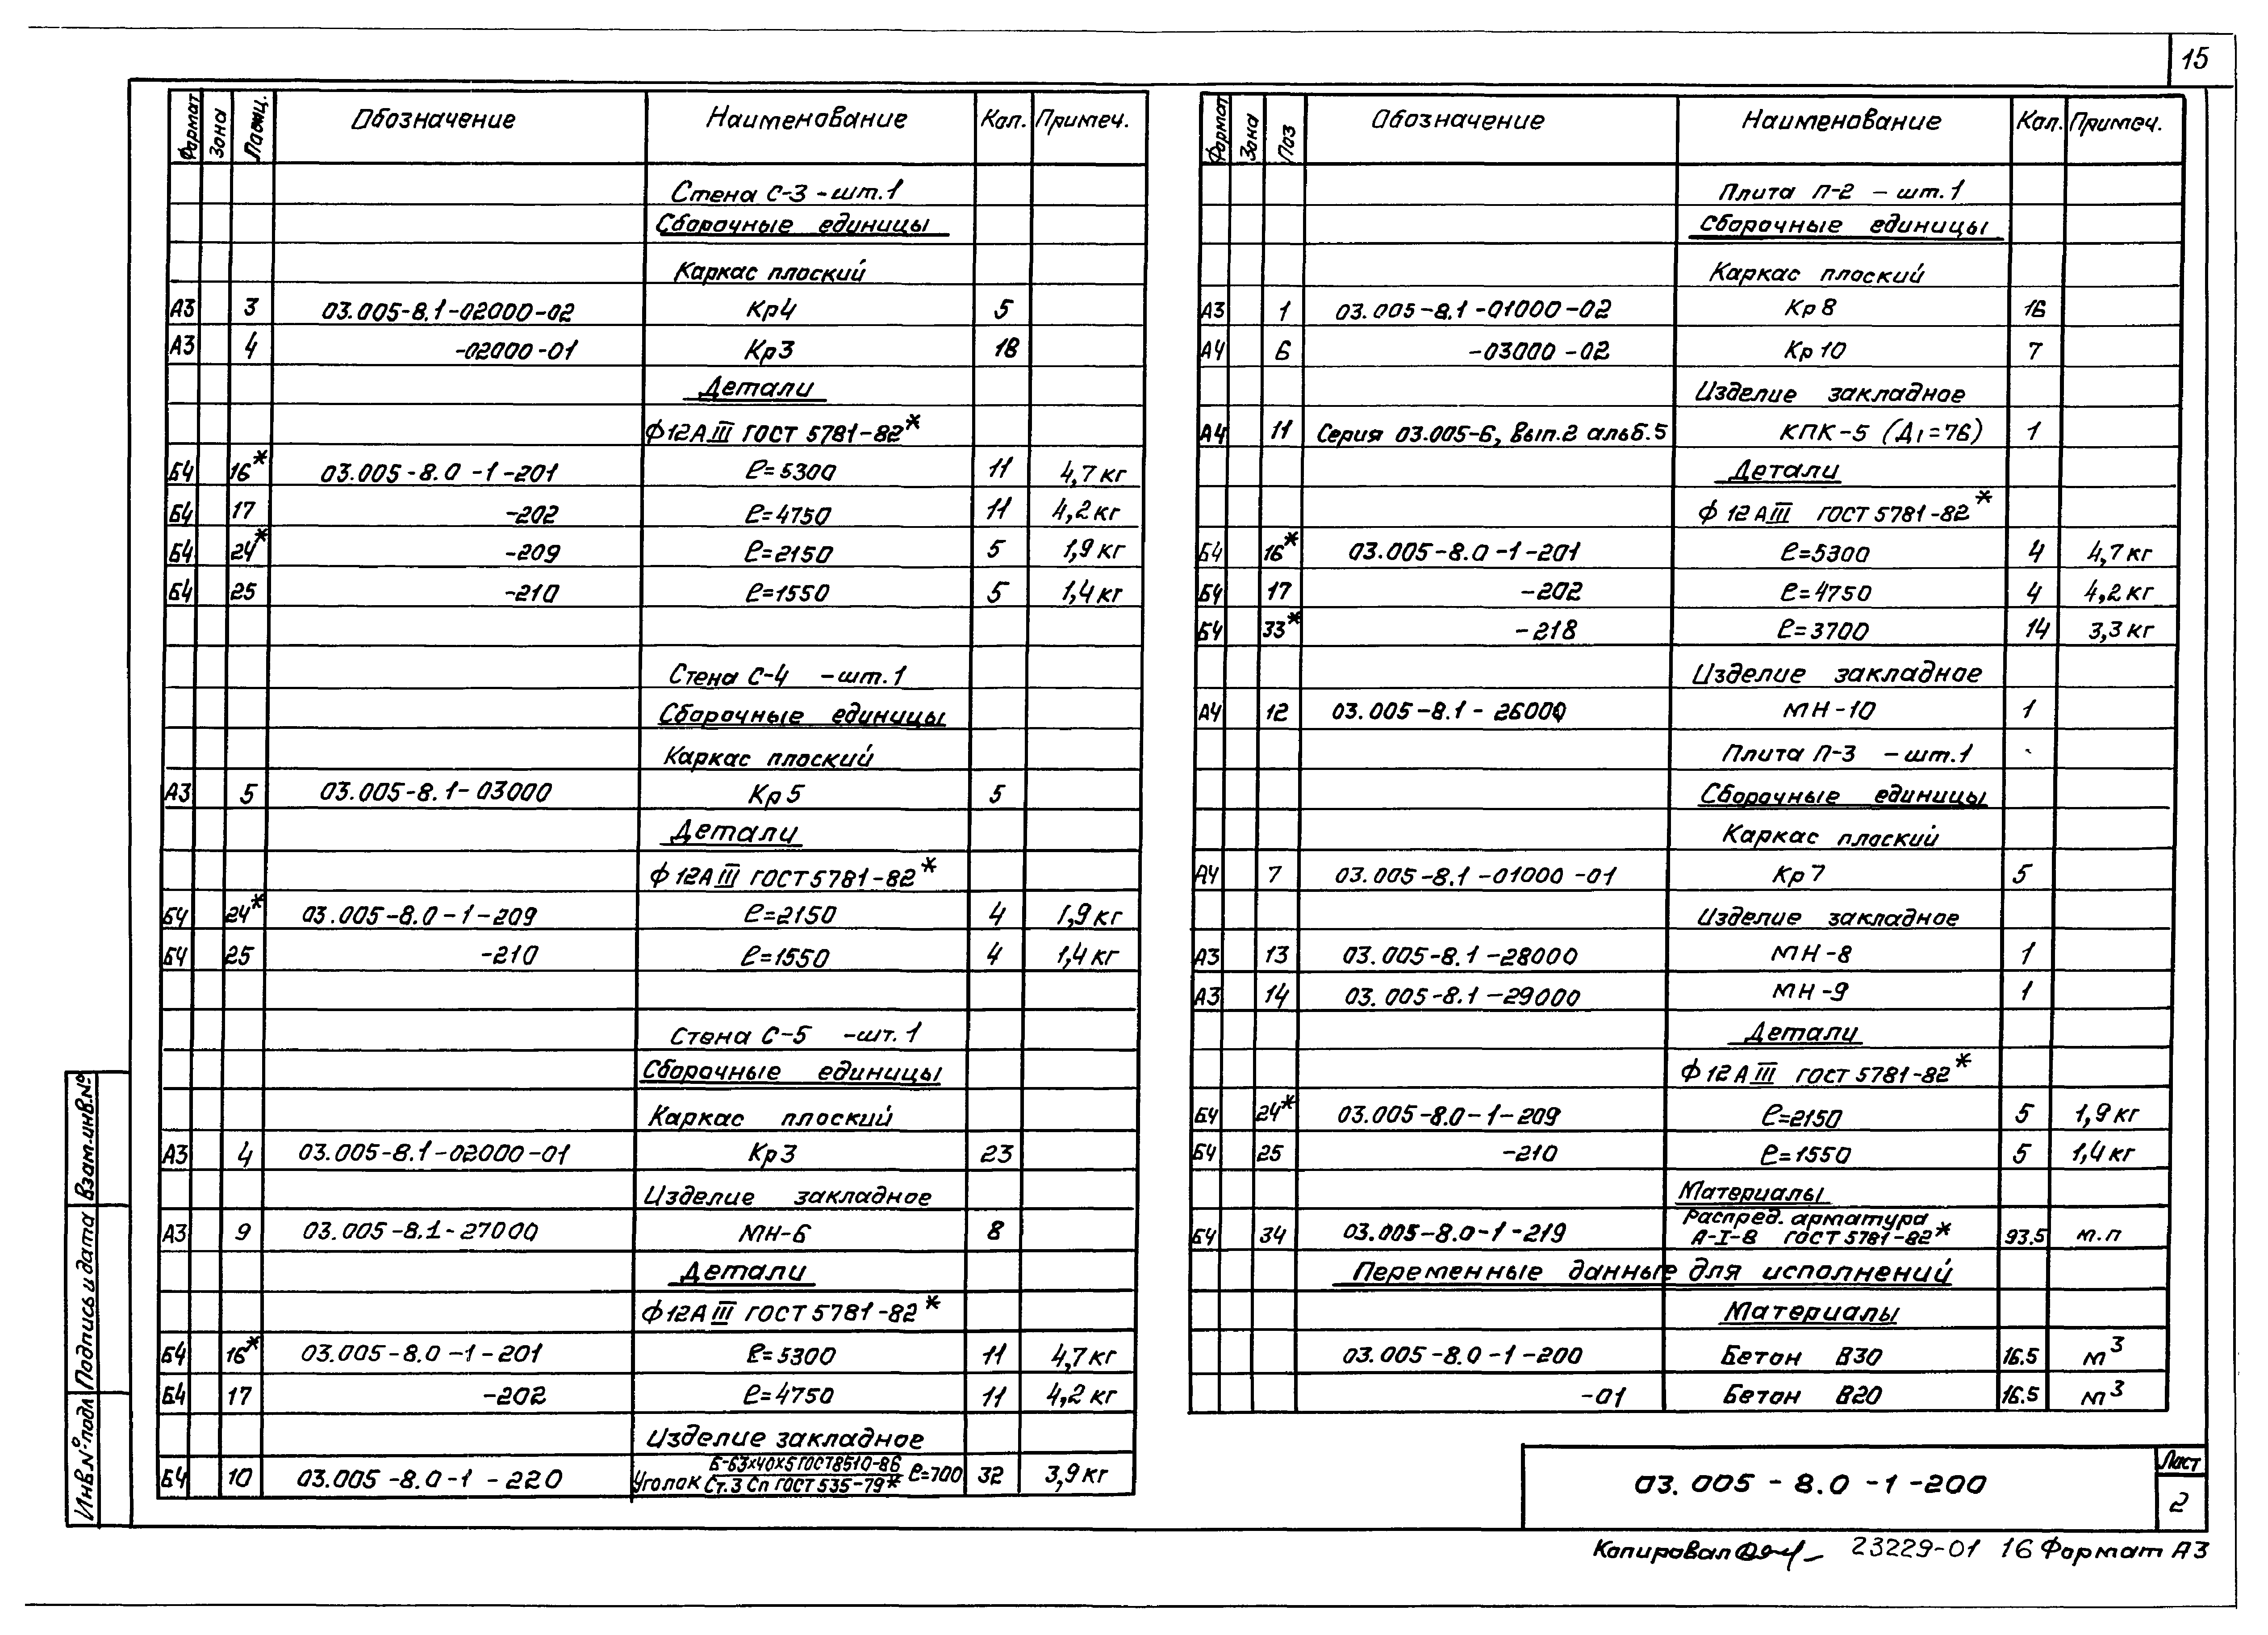 15
Формат Зона Позиц. Обозначение Наименование Кол. Примеч.
Стена С-3 - шт. 1
Сборочные единицы
Каркас плоский
А3 3 03.005-8.1-02000-02 Кр4 5
А3 4 -02000-01 Кр3 18
Детали
Ф12АIII ГОСТ 5781-82*
Б4 16* 03.005-8.0-1-201 ℓ=5300 11 4,7 кг
Б4 17 -202 ℓ=4750 11 4,2 кг
Б4 24* -209 ℓ=2150 5 1,9 кг
Б4 25 -210 ℓ=1550 5 1,4 кг
Стена С-4 - шт. 1
Сборочные единицы
Каркас плоский
А3 5 03.005-8.1-03000 Кр5 5
Детали
Ф12АIII ГОСТ 5781-82*
Б4 24* 03.005-8.0-1-209 ℓ=2150 4 1,9 кг
Б4 25 -210 ℓ=1550 4 1,4 кг
Стена С-5 - шт. 1
Сборочные единицы
Каркас плоский
А3 4 03.005-8.1-02000-01 Кр3 23
Изделие закладное
А3 9 03.005-8.1-27000 МН-6 8
Детали
Ф12АIII ГОСТ 5781-82*
Б4 16* 03.005-8.0-1-201 ℓ=5300 11 4,7 кг
Б4 17 -202 ℓ=4750 11 4,2 кг
Изделие закладное
Б4 10 03.005-8.0-1-220 Уголок Б-63х40х5 ГОСТ 8510-86 Ст.3 Сп ГОСТ 535-79* ℓ=700 32 3,9 кг
Формат Зона Поз Обозначение Наименование Кол. Примеч.
Плита П-2 - шт. 1
Сборочные единицы
Каркас плоский
А3 1 03.005-8.1-01000-02 Кр8 16
А4 6 -03000-02 Кр10 7
Изделие закладное
А4 11 Серия 03.005-6, вып.2 альб.5 КПК-5 (Д1=76) 1
Детали
Ф 12 АIII ГОСТ 5781-82*
Б4 16* 03.005-8.0-1-201 ℓ=5300 4 4,7 кг
Б4 17 -202 ℓ=4750 4 4,2 кг
Б4 33* -218 ℓ=3700 14 3,3 кг
Изделие закладное
А4 12 03.005-8.1-26000 МН-10 1
Плита П-3 - шт. 1
Сборочные единицы
Каркас плоский
А4 7 03.005-8.1-01000-01 Кр7 5
Изделие закладное
А3 13 03.005-8.1-28000 МН-8 1
А3 14 03.005-8.1-29000 МН-9 1
Детали
Ф12АIII ГОСТ 5781-82*
Б4 24* 03.005-8.0-1-209 ℓ=2150 5 1,9 кг
Б4 25 -210 ℓ=1550 5 1,4 кг
Материалы
Распред. арматура
Б4 34 03.005-8.0-1-219 А-I-8 ГОСТ 5781-82* 93.5 м.п
Переменные данные для исполнений
Материалы
03.005-8.0-1-200 Бетон В30 16.5 м³
-01 Бетон В20 16.5 м³
Инв.№ подл Подпись и дата Взам.инв.№
03.005-8.0-1-200
Лист
2
Копировал 23229-01 16 Формат А3